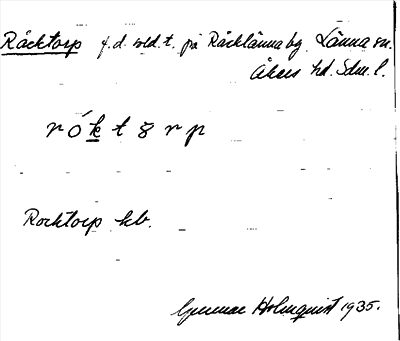 Råcktorp f.d. sold.t. på Råcklänna by Länna sn.
Åkers hd. Sdm. l.
rók t ơ r p
Rocktorp kb.
Gunnar Holmquist 1935.